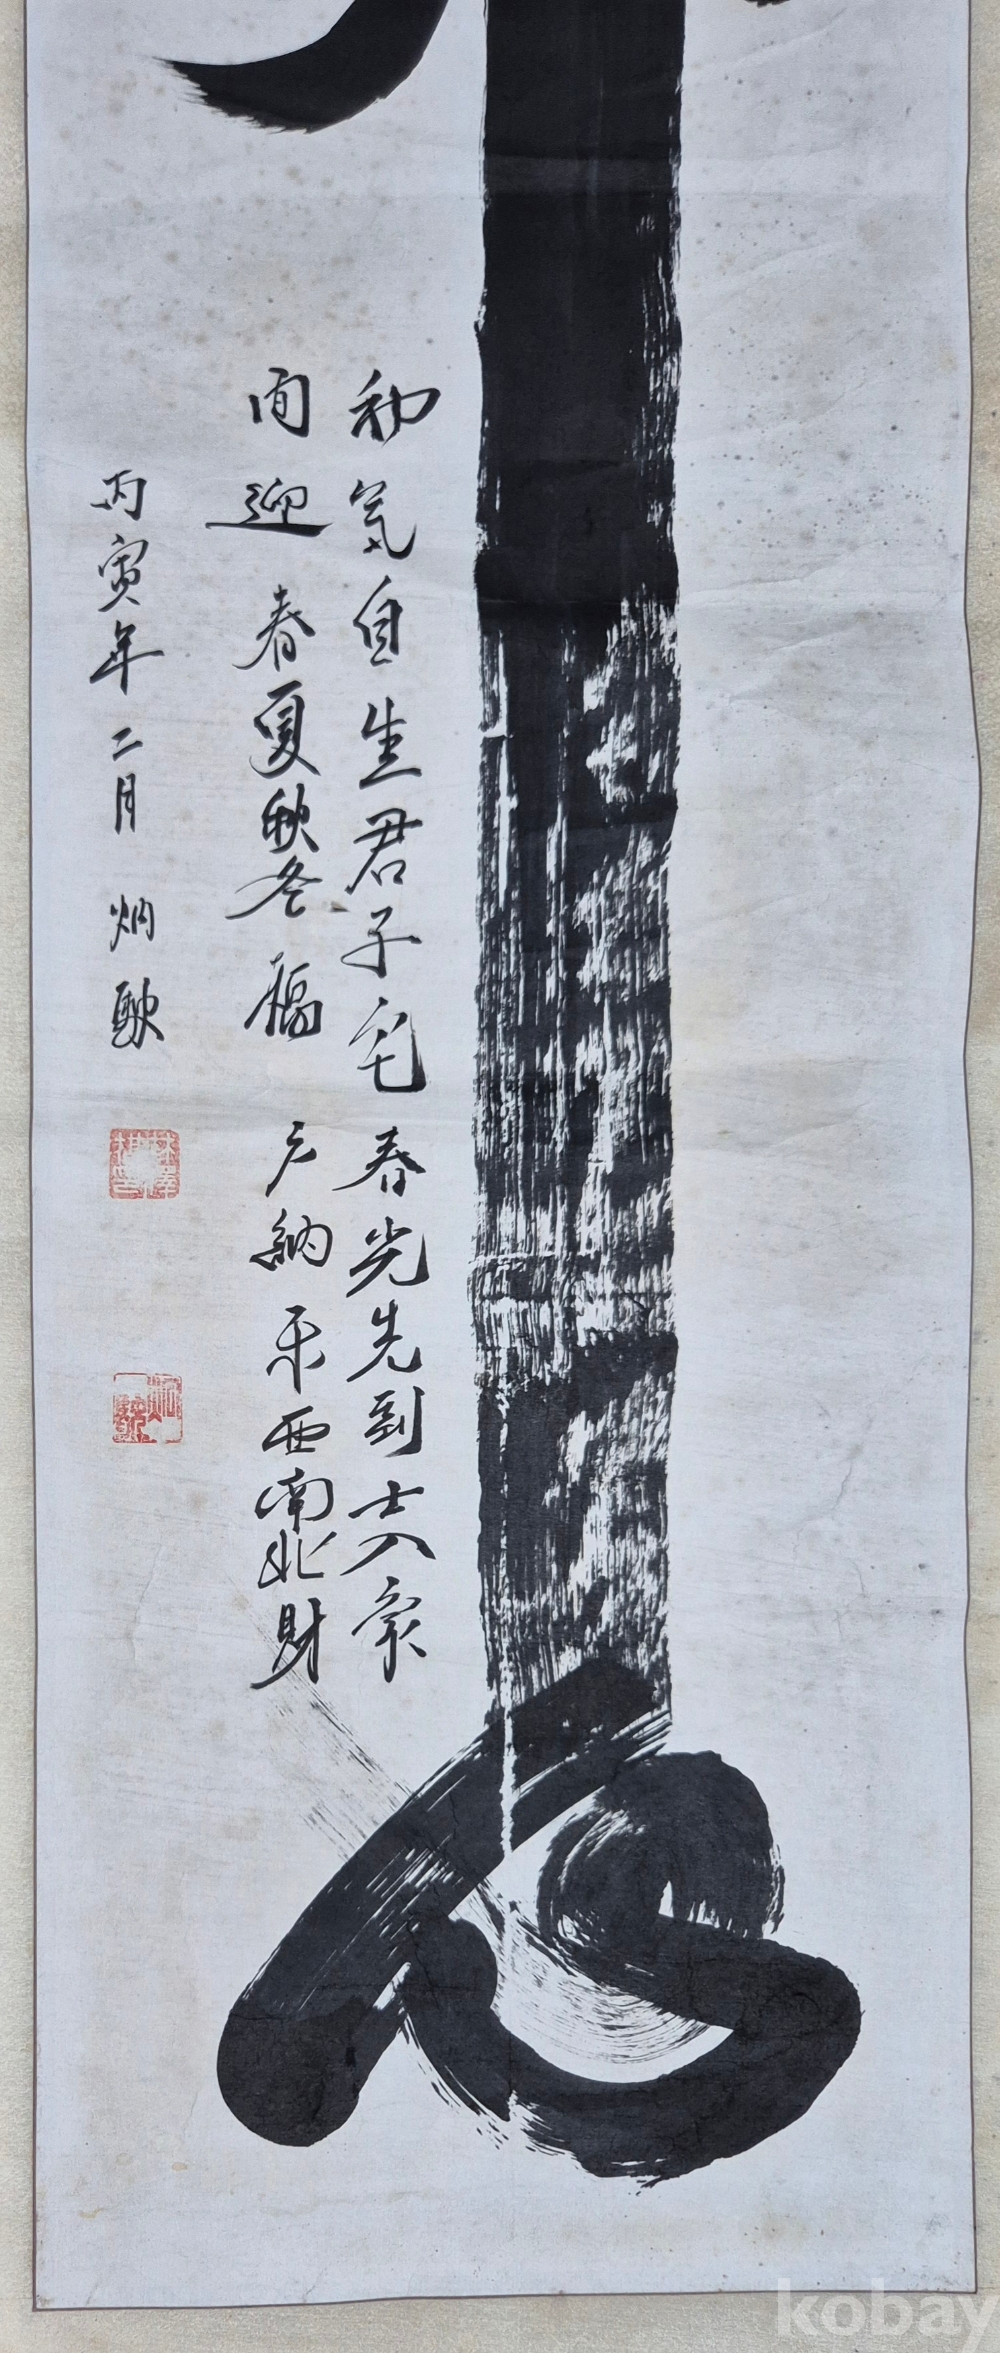 和氣自生君子宅 春光先到士人家
門迎春夏秋冬福 戶納東西南北財
丙寅年二月 炳
kobay